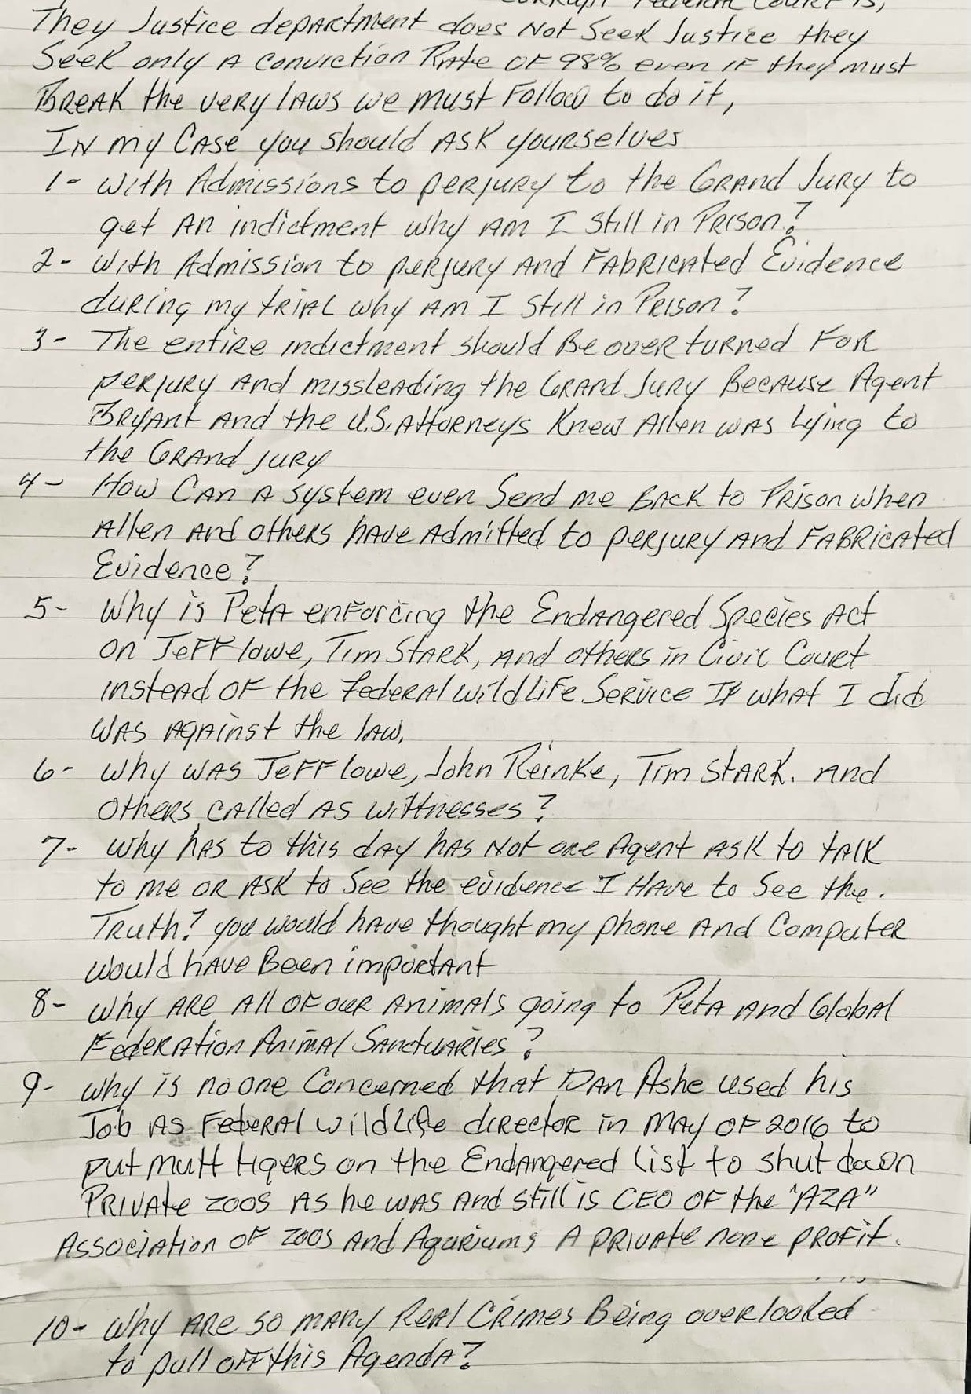 Federal Court is,
They Justice department does Not Seek Justice they
Seek only A Conviction Rate OF 98% even IF they must
BREAK the very laws we must Follow to do it,
IN my CASE you should ASK yourselves
1- With Admissions to perjury to the GRAND JURY to
get AN indictment why AM I Still in Prison?
2- With Admission to perjury AND FABRICATED Evidence
during my TRIAL why AM I Still in Prison?
3- The entire indictment should Be overturned FOR
perjury AND missleading the GRAND JURY Because Agent
BRYANT AND the U.S. Attorneys Knew Allen was Lying to
the GRAND JURY
4- How CAN A system even Send me BACK to Prison when
Allen AND others have Admitted to perjury AND FABRICATED
Evidence?
5- Why is PetA enforcing the Endangered Species Act
on Jeff lowe, Tim STARK, AND others in Civic Court
instead OF the Federal wildlife Service IF what I did
was against the law.
6- Why was Jeff lowe, John Reinke, Tim STARK. AND
Others CALLED AS wittnesses?
7- Why has to this day has Not one Agent ASK to talk
to me OR ASK to See the evidence I HAVE to See the.
Truth? you would have thought my phone AND Computer
would HAVE Been important
8- Why ARE All OF our Animals going to PetA AND Global
Federation Animal Sanctuaries?
9- Why is no one Concerned that DAN Ashe used his
Job AS Federal wildlife director in MAY OF 2016 to
put mutt tigers on the Endangered list to shut down
PRIVATE ZOOS AS he was AND still is CEO OF the "AZA"
Association OF ZOOS AND Aquriums A PRIVATE none PROFIT.
10- Why ARE so many Real Crimes Being overlooked
to pull off this Agenda?